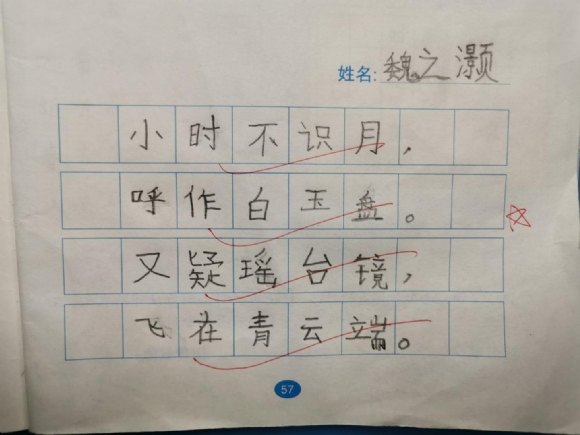 姓名:魏之灏
小时不识月，
呼作白玉盘。
又疑瑶台镜，
飞在青云端。
57